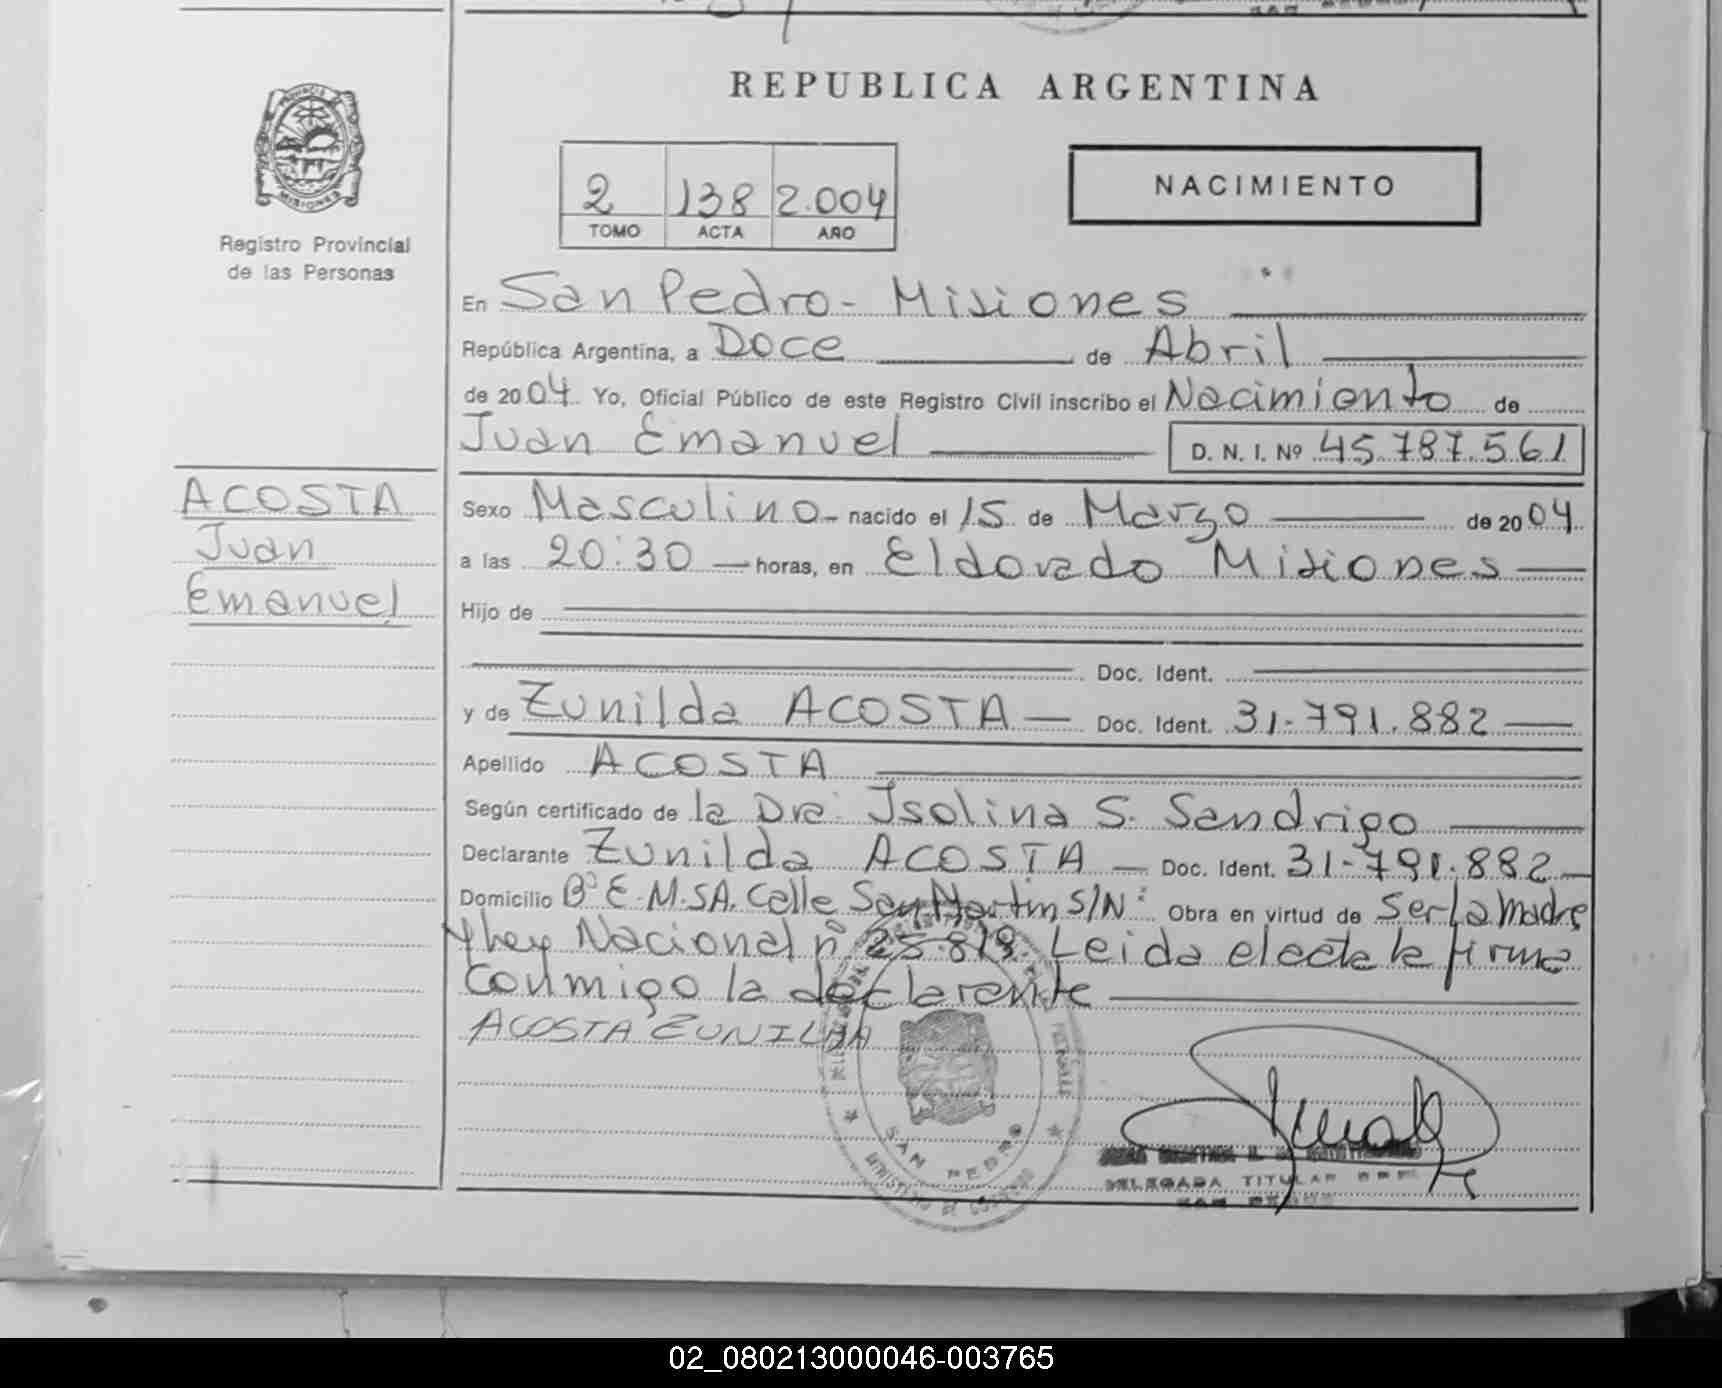 REPUBLICA ARGENTINA
PROVINCIA
MISIONES
Registro Provincial
de las Personas
2 138 2.004
TOMO ACTA AÑO
NACIMIENTO
En San Pedro - Misiones
República Argentina, a Doce de Abril
de 2004. Yo, Oficial Público de este Registro Civil inscribo el Nacimiento de
Juan Emanuel D. N. I. Nº 45.787.561
ACOSTA
Juan
Emanuel
Sexo Masculino - nacido el 15 de Marzo de 2004.
a las 20:30 — horas, en Eldorado Misiones —
Hijo de
Doc. Ident.
y de Zunilda ACOSTA — Doc. Ident. 31-791.882 —
Apellido ACOSTA
Según certificado de la Dra: Isolina S. Sandrigo
Declarante Zunilda ACOSTA — Doc. Ident. 31-791.882 —
Domicilio Bº E.M.SA. Calle San Martin S/Nº Obra en virtud de Ser la madre
y Ley Nacional nº 25.819. Leida el acta la firma
conmigo la declarante
ACOSTA ZUNILDA
SAN PEDRO
MINISTERIO DE GOBIERNO
DELEGADA TITULAR
SAN PEDRO
02_080213000046-003765